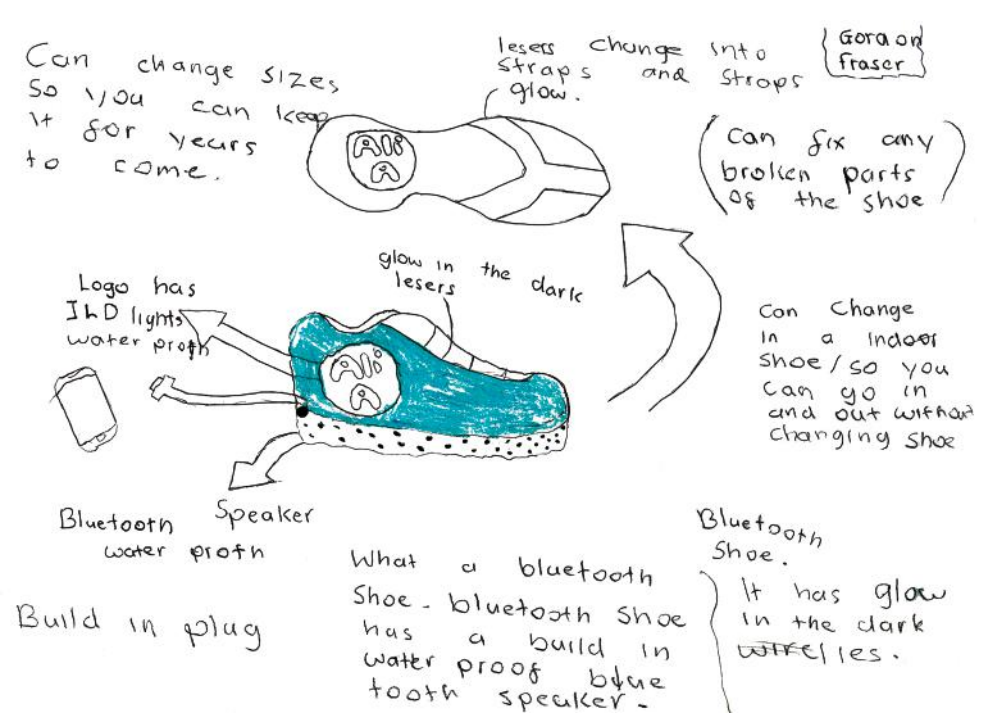 Can change sizes
so you can keep
it for years
to come.
lesers change into
straps and straps
glow.
Goraon
fraser
can fix any
broken parts
of the shoe
Logo has
ILD lights
water proth
glow in the dark
lesers
Can Change
in a indoor
shoe/so you
can go in
and out without
changing shoe
Bluetooth Speaker
water proth
Build in plug
What a bluetooth
Shoe. bluetooth shoe
has a build in
water proof blue
tooth speaker.
Bluetooth
Shoe.
It has glow
in the dark